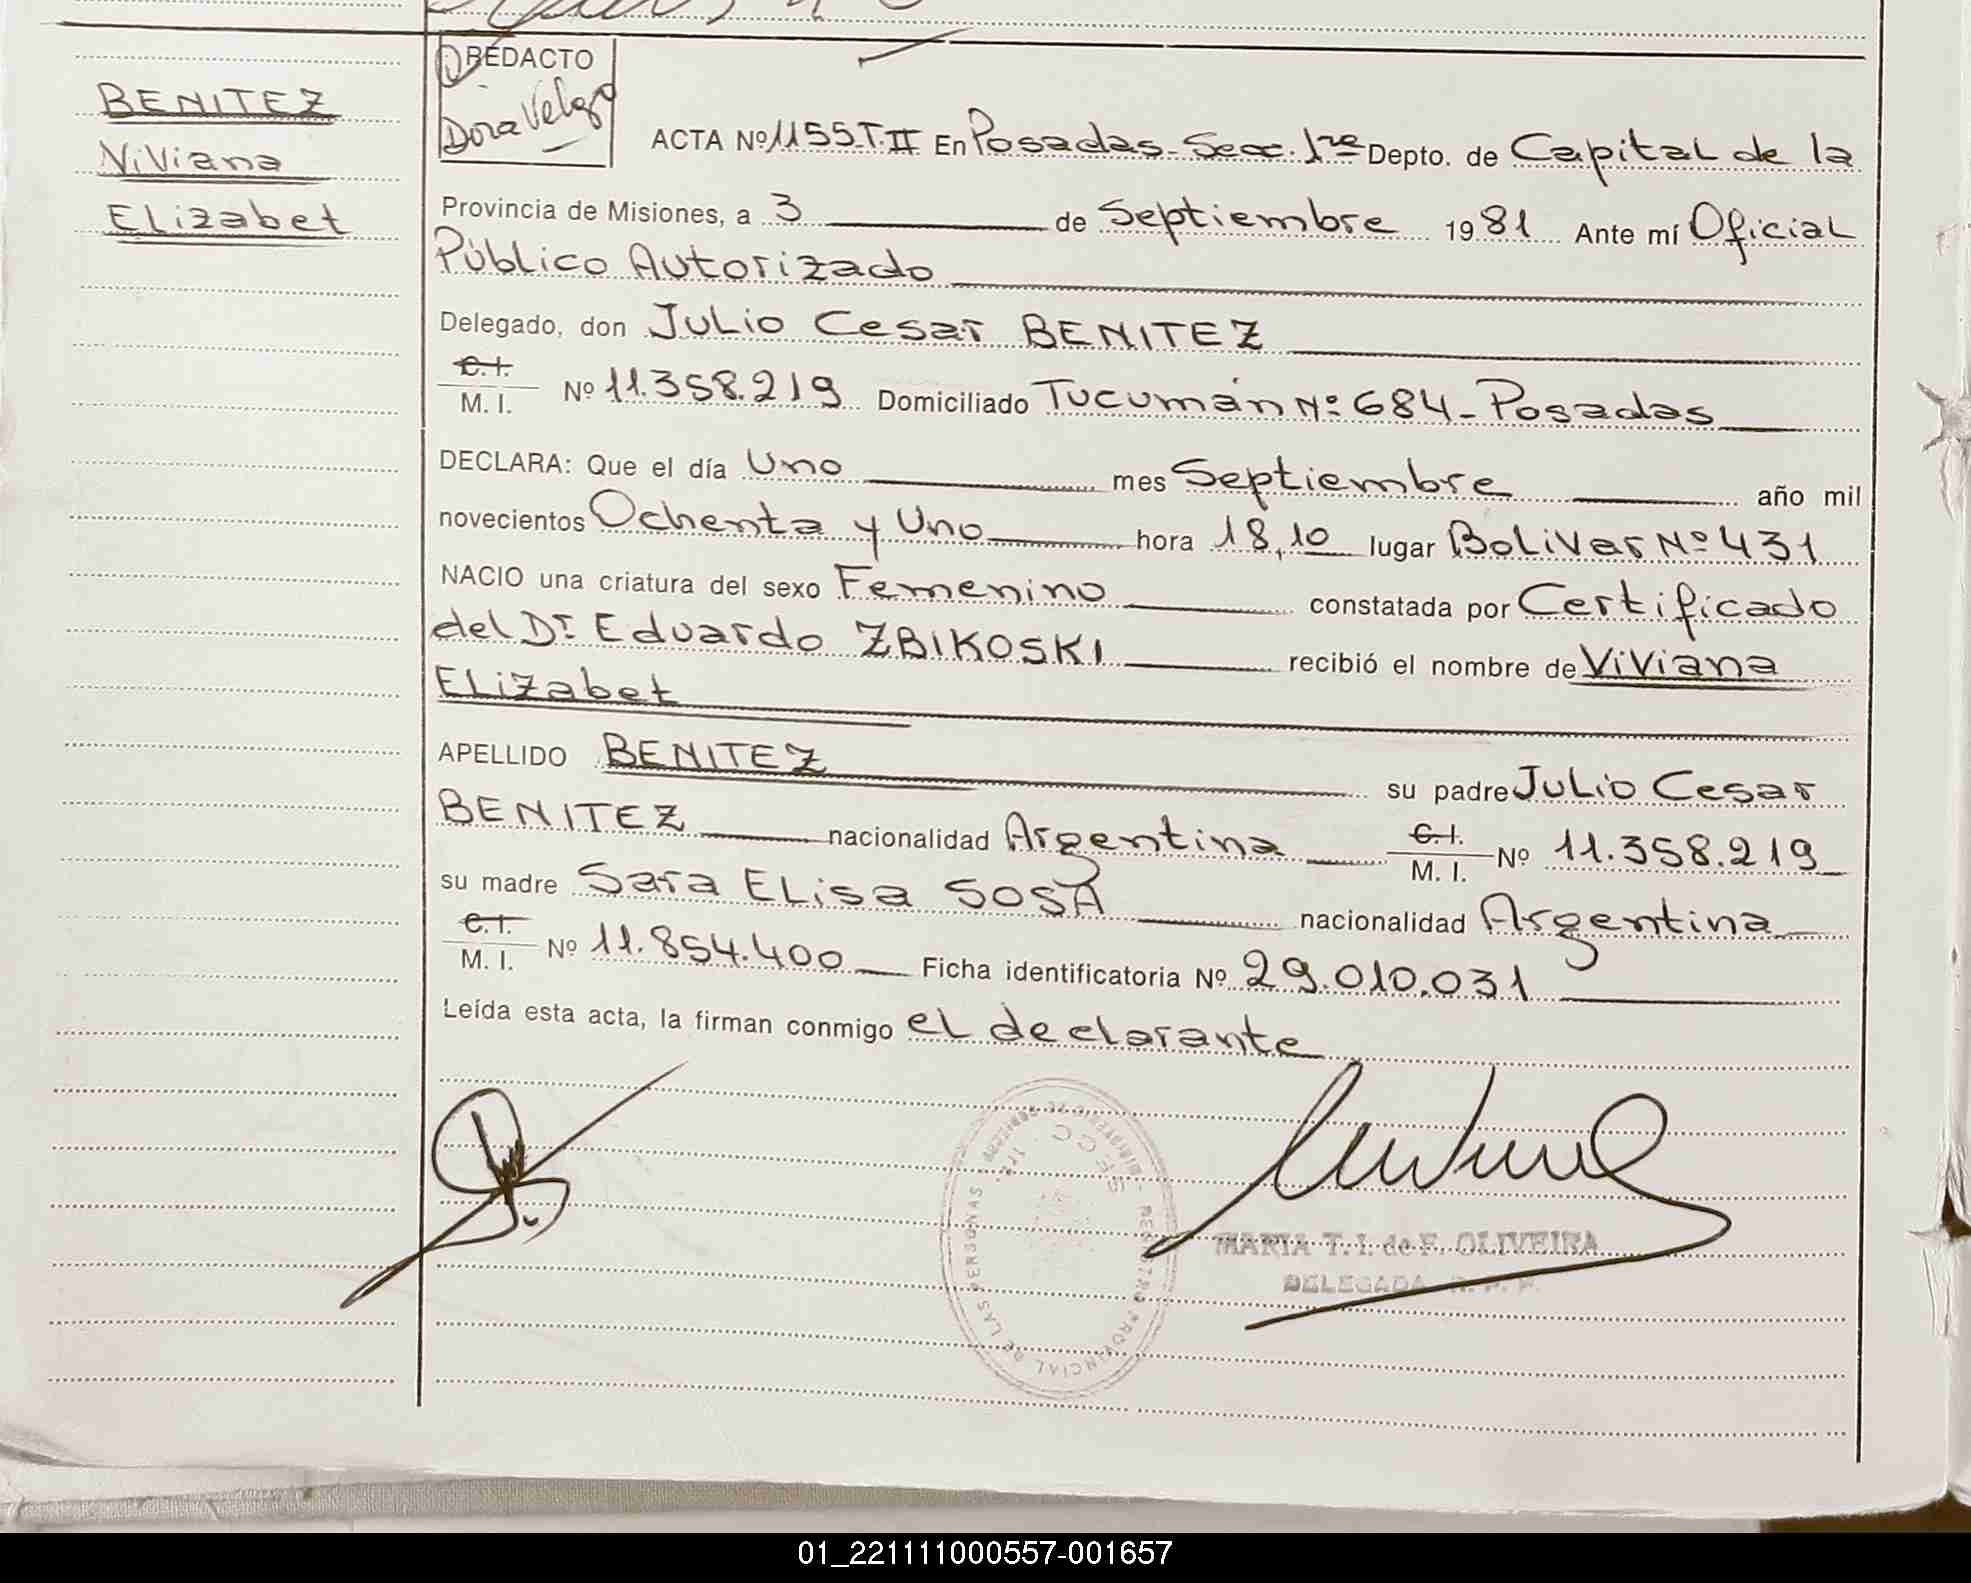 BENITEZ
Viviana
Elizabet
REDACTO
Dora Velazo
ACTA Nº 1155 T. II En Posadas - Secc. 1ra Depto. de Capital de la
Provincia de Misiones, a 3 de Septiembre 1981 Ante mí Oficial
Público Autorizado
Delegado, don Julio Cesar BENITEZ
C.I.
M. I. Nº 11.358.219 Domiciliado Tucumán Nº 684 - Posadas
DECLARA: Que el día Uno mes Septiembre año mil
novecientos Ochenta y Uno hora 18,10 lugar Bolivar Nº 431
NACIO una criatura del sexo Femenino constatada por Certificado
del Dr. Eduardo ZBIKOSKI recibió el nombre de Viviana
Elizabet
APELLIDO BENITEZ su padre Julio Cesar
BENITEZ nacionalidad Argentina C.I. M. I. Nº 11.358.219
su madre Sara Elisa SOSA nacionalidad Argentina
C.I.
M. I. Nº 11.854.400 Ficha identificatoria Nº 29.010.031
Leída esta acta, la firman conmigo el declarante
REGISTRO PROVINCIAL DE LAS PERSONAS
SECC. 1ra.
MARIA T. I. de F. OLIVEIRA
DELEGADA R. P. P.
01_221111000557-001657